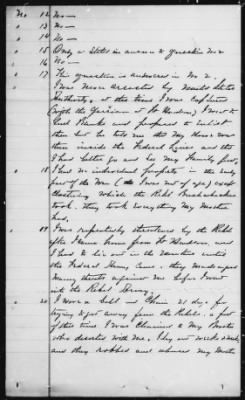 No 12 No—
" 13 No—
" 14 No—
" 15 Only as States in answer to question No 2
" 16 No—
" 17 This question is answered in No 2.
I was never arrested by United States
Authority. at the time I was Captured
with the Garrison at Ft Henderson, I went to
and proposed to enlist
then but he told me that my home was
then inside the Federal Lines and that
I had better go and see my Family first,
" 18 I had no individual property in the early
part of the War (I was not of age) except
Clothing which the Rebel Bushwhackers
took. They took everything my Mother
had.
" 19 I was repeatedly threatened by the Rebels
after I came home from Ft Henderson, and
I had to lie out in the Mountains until
the Federal Army Came. they made a great
many threats against me before I went
into the Rebel Army.
" 20 I wore a Ball and Chain 21 days for
trying to get away from the Rebels. a part
of this time I was Chained to my Brother
who deserted with me. They
and they robbed and abused my Mother